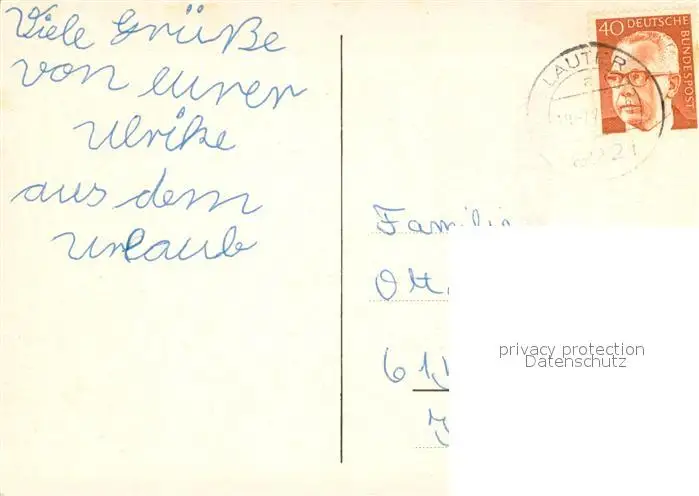 Viele Grüße
von eurer
Ulrike
aus dem
Urlaub
40 DEUTSCHE BUNDESPOST
LAUTER
Familie
Ott
61
privacy protection
Datenschutz